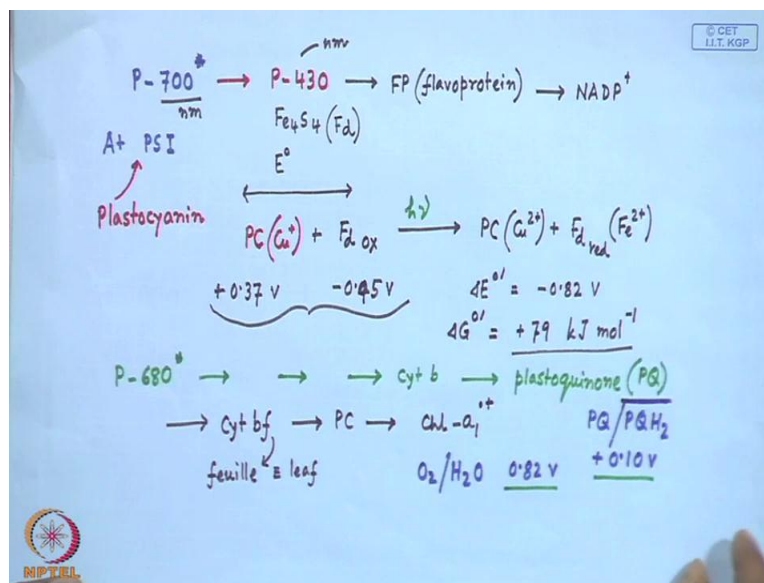 © CET
I.I.T. KGP
nm
P-700* → P-430 → FP (flavoprotein) → NADP⁺
nm
Fe₄S₄ (Fd)
At PSI
E°
Plastocyanin
PC(Cu⁺) + Fd ox hν → PC(Cu²⁺) + Fd red (Fe²⁺)
+0.37 V -0.45 V ΔE°' = -0.82 V
ΔG°' = +79 kJ mol⁻¹
P-680* → → → Cyt b → plastoquinone (PQ)
→ Cyt bf → PC → Chl-a₁•⁺ PQ/PQH₂
feuille ≡ leaf O₂/H₂O 0.82 V +0.10 V
NPTEL